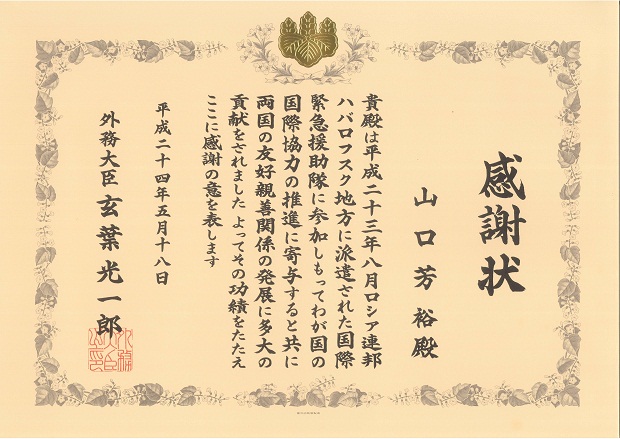 感謝状
山口芳裕殿
貴殿は平成二十三年八月ロシア連邦
ハバロフスク地方に派遣された国際
緊急援助隊に参加しもってわが国の
国際協力の推進に寄与すると共に
両国の友好親善関係の発展に多大の
貢献をされました よってその功績をたたえ
ここに感謝の意を表します
平成二十四年五月十八日
外務大臣 玄葉光一郎